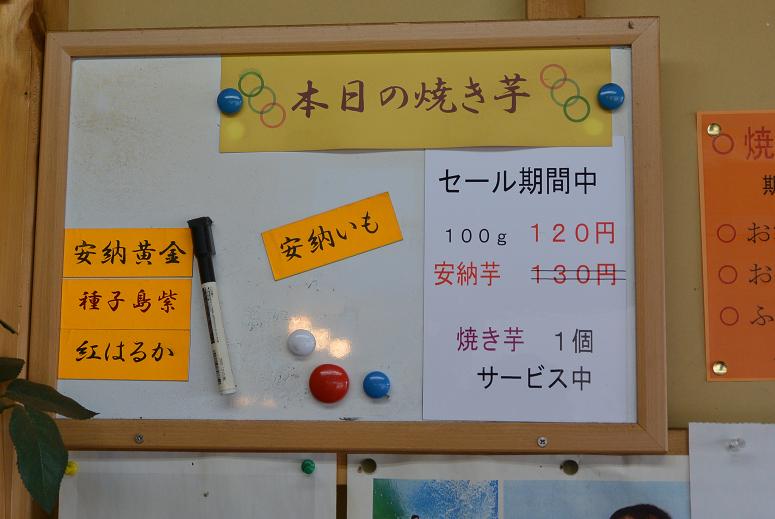 本日の焼き芋
セール期間中
100g 120円
安納芋 130円
焼き芋 1個
サービス中
安納いも
安納黄金
種子島紫
紅はるか
焼
期
お
お
ふ